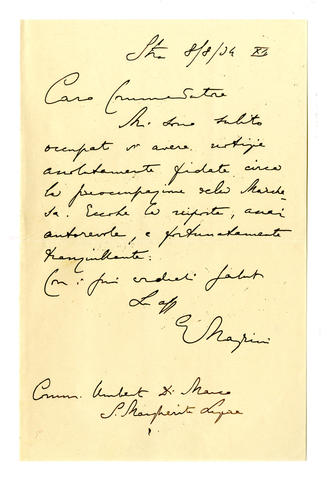 8/8/34 XII
Caro Commendatore
Mi sono subito
occupato di avere notizie
assolutamente fidate circa
la preoccupazione della Marche-
sa. Eccole la risposta, assai
autorevole, e fortunatamente
tranquillante.
Con i più cordiali saluti
Suo aff
G Magrini
Comm. Umberto Di Marco
S. Margherita Ligure